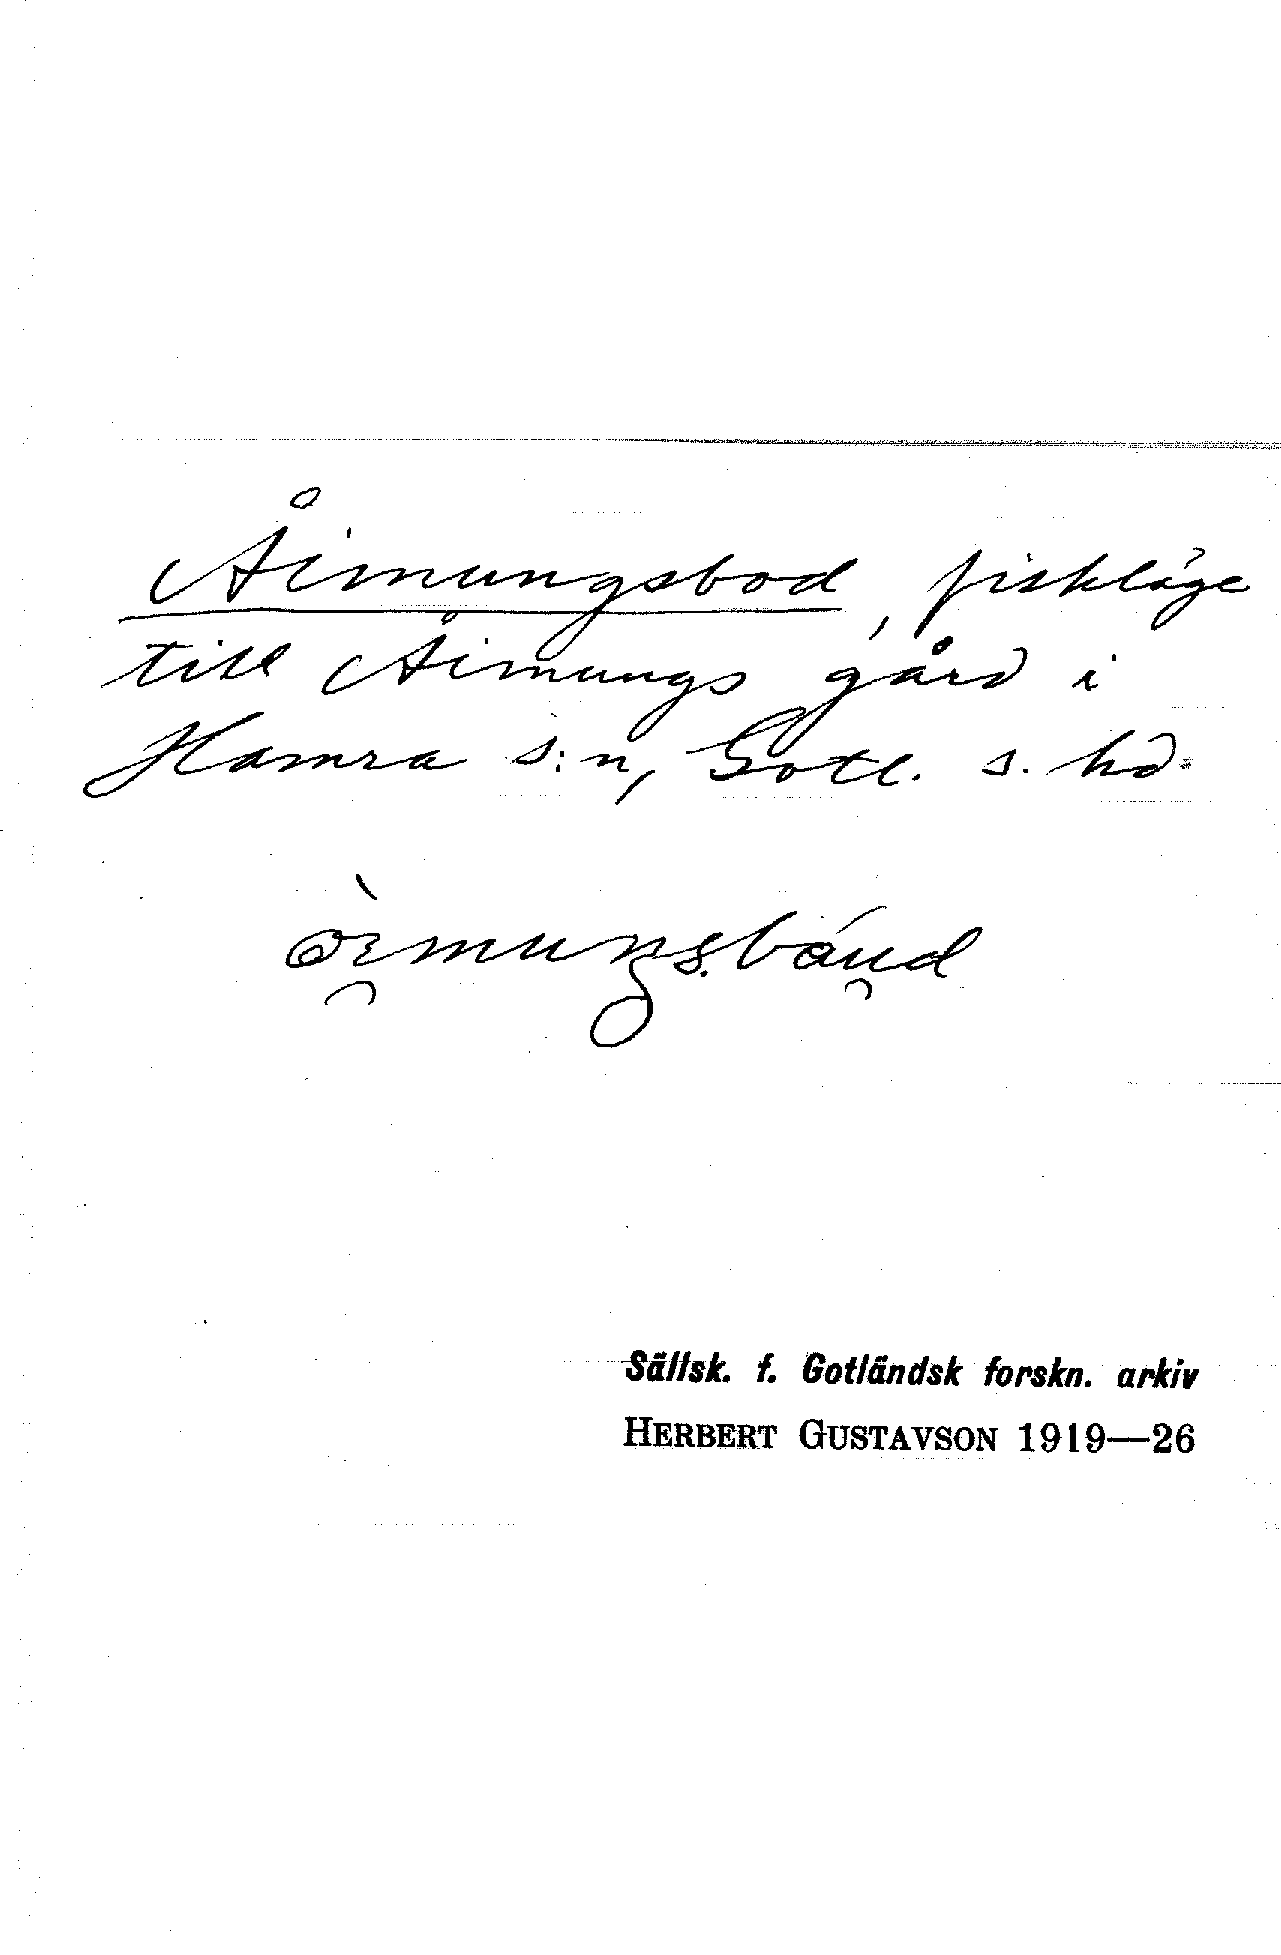 Åimungsbod, fiskläge
till Åimungs gård i
Hamra s:n, Gotl. s. hd.
Sällsk. f. Gotländsk forskn. arkiv
HERBERT GUSTAVSON 1919—26